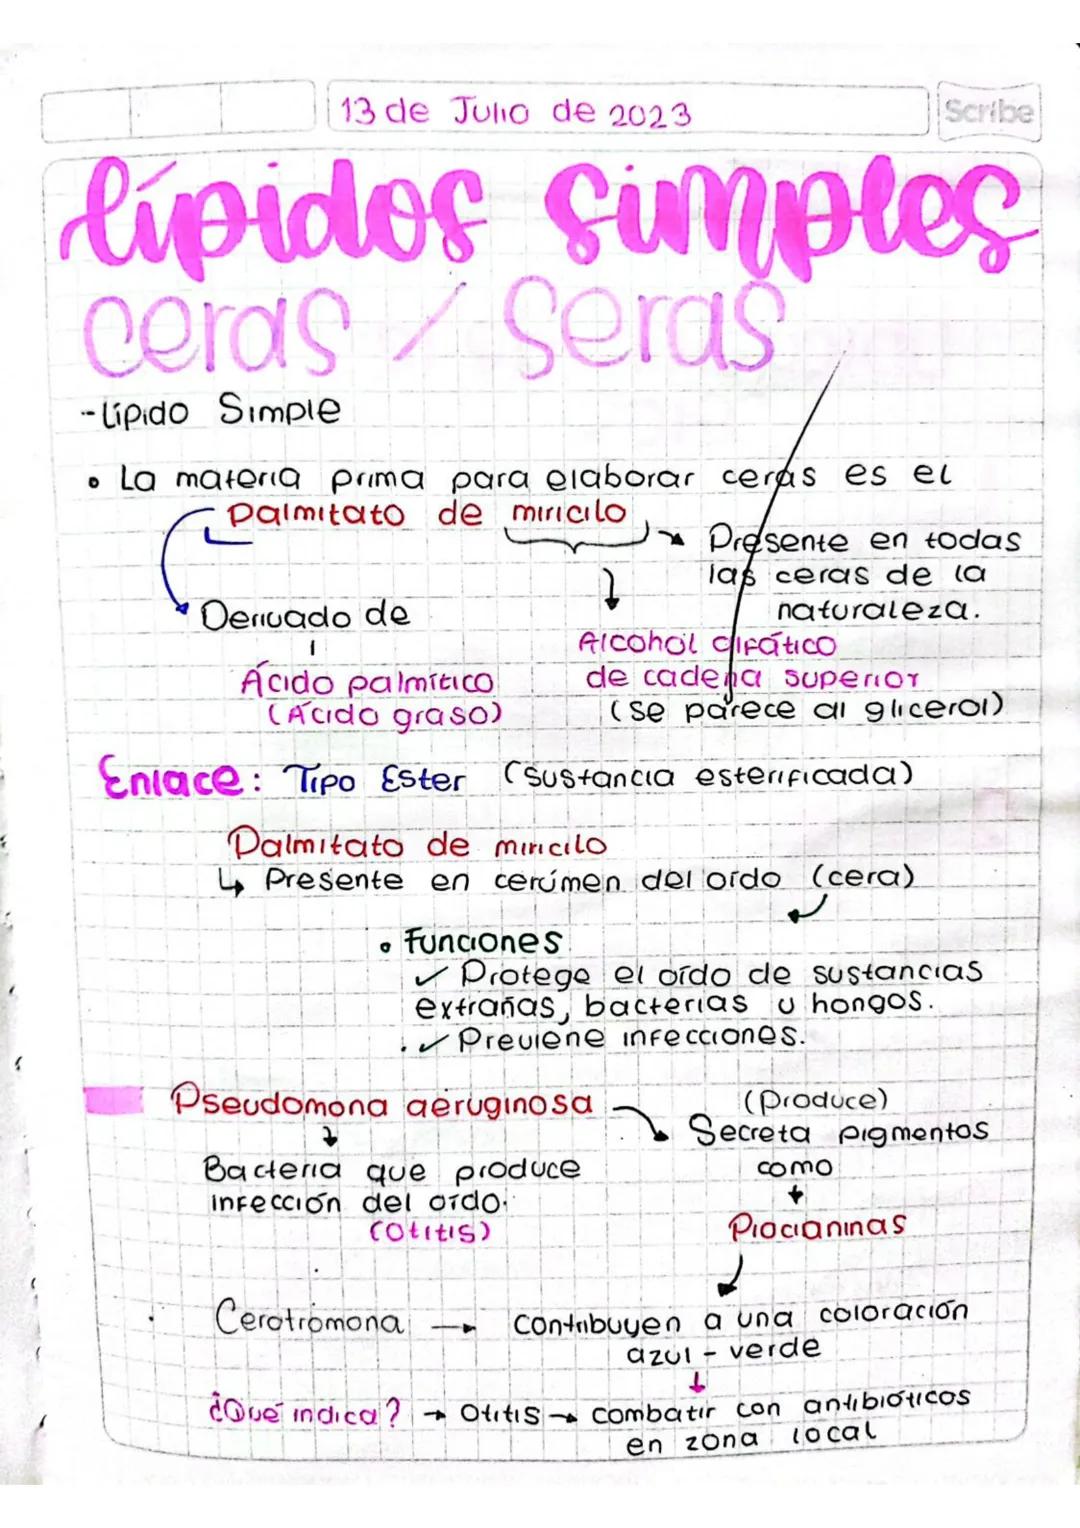 13 de Julio de 2023
Scribe
lípidos simples
ceras / Seras
- Lípido Simple
• La materia prima para elaborar ceras es el
Palmitato de miricilo
Presente en todas
las ceras de la
naturaleza.
Derivado de
Ácido palmítico
(Ácido graso)
Alcohol alifático
de cadena superior
(se parece al glicerol)
Enlace: Tipo Ester (sustancia esterificada)
Palmitato de miricilo
↳ Presente en cerúmen del oído (cera)
• Funciones
✓ Protege el oído de sustancias
extrañas, bacterias u hongos.
✓ Previene infecciones.
Pseudomona aeruginosa
(Produce)
Secreta pigmentos
como
Piocianinas
Bacteria que produce
infección del oído.
(Otitis)
Cerotromona → contribuyen a una coloración
azul - verde
¿Qué indica? → Otitis → combatir con antibióticos
en zona local